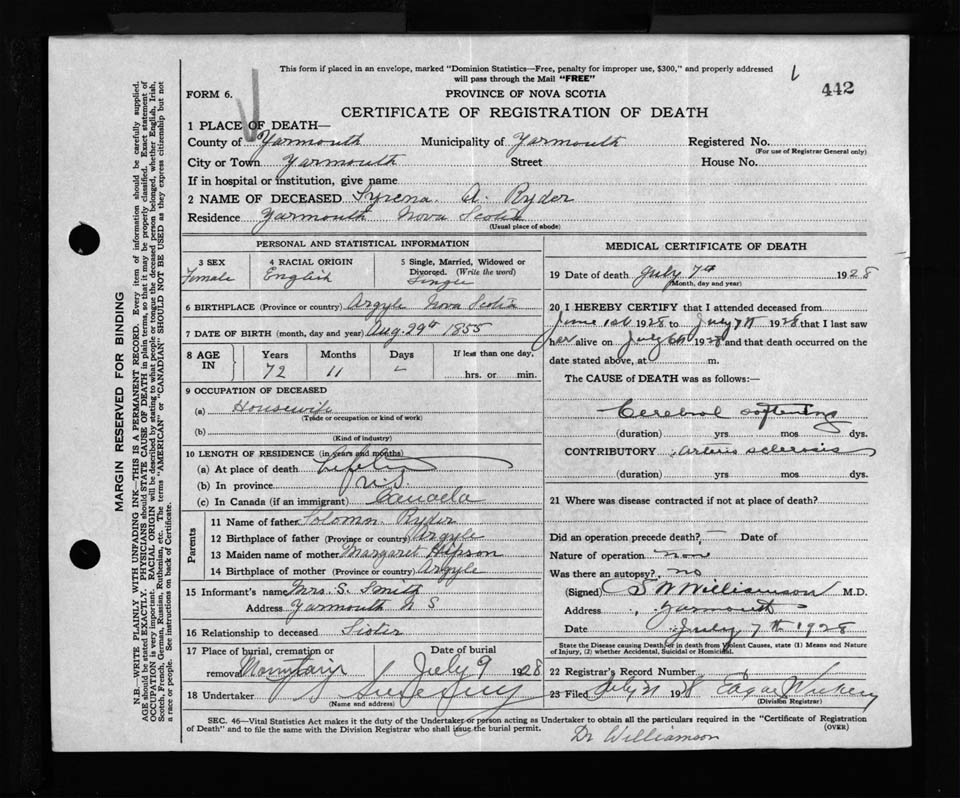 This form if placed in an envelope, marked "Dominion Statistics—Free, penalty for improper use, $300," and properly addressed
will pass through the Mail "FREE"
442
FORM 6.
PROVINCE OF NOVA SCOTIA
CERTIFICATE OF REGISTRATION OF DEATH
1 PLACE OF DEATH—
County of Yarmouth Municipality of Yarmouth Registered No.
(For use of Registrar General only)
City or Town Yarmouth Street House No.
If in hospital or institution, give name
2 NAME OF DECEASED Syrena A. Ryder
Residence Yarmouth Nova Scotia
(Usual place of abode)
PERSONAL AND STATISTICAL INFORMATION
3 SEX
Female
4 RACIAL ORIGIN
English
5 Single, Married, Widowed or
Divorced. (Write the word)
Single
6 BIRTHPLACE (Province or country) Argyle Nova Scotia
7 DATE OF BIRTH (month, day and year) Aug. 29th 1855
8 AGE IN
Years Months Days If less than one day,
72 11 – hrs. or min.
9 OCCUPATION OF DECEASED
(a) Housewife
(Trade or occupation or kind of work)
(b)
(Kind of industry)
10 LENGTH OF RESIDENCE (in years and months)
(a) At place of death
(b) In province N.S.
(c) In Canada (if an immigrant) Canada
Parents
11 Name of father Solomn Ryder
12 Birthplace of father (Province or country) Argyle
13 Maiden name of mother Margaret
14 Birthplace of mother (Province or country) Argyle
15 Informant's name Mrs. S. Smith
Address Yarmouth N S
16 Relationship to deceased Sister
17 Place of burial, cremation or removal Date of burial
July 9 1928
18 Undertaker
(Name and address)
MEDICAL CERTIFICATE OF DEATH
19 Date of death July 7th 1928
(Month, day and year)
20 I HEREBY CERTIFY that I attended deceased from
June 1st 1928 to July 7th 1928 that I last saw
her alive on July 6th 1928 and that death occurred on the
date stated above, at m.
The CAUSE of DEATH was as follows:
Cerebral softening
(duration) yrs. mos dys.
CONTRIBUTORY arterio sclerosis
(duration) yrs. mos dys.
21 Where was disease contracted if not at place of death?
Did an operation precede death? – Date of
Nature of operation
Was there an autopsy? no
(Signed) S W Williamson M.D.
Address Yarmouth
Date July 7th 1928
State the Disease causing Death, or in death from Violent Causes, state (1) Means and Nature
of Injury, (2) whether Accidental, Suicidal or Homicidal.
22 Registrar's Record Number
23 Filed July 21 1928 Edgar
(Division Registrar)
SEC. 46—Vital Statistics Act makes it the duty of the Undertaker or person acting as Undertaker to obtain all the particulars required in the "Certificate of Registration
of Death" and to file the same with the Division Registrar who shall issue the burial permit.
(OVER)
Dr Williamson
MARGIN RESERVED FOR BINDING
N.B.—WRITE PLAINLY WITH UNFADING INK—THIS IS A PERMANENT RECORD. Every item of information should be carefully supplied.
AGE should be stated EXACTLY. PHYSICIANS should STATE CAUSE OF DEATH in plain terms, so that it may be properly classified. Exact statement of
OCCUPATION is very important. RACIAL ORIGIN will be described by stating to what people or tongue the deceased person belonged, whether English, Irish,
Scotch, French, German, Russian, Ruthenian, etc. The terms "AMERICAN" or "CANADIAN" SHOULD NOT BE USED as they express citizenship but not
a race or people. See instructions on back of Certificate.